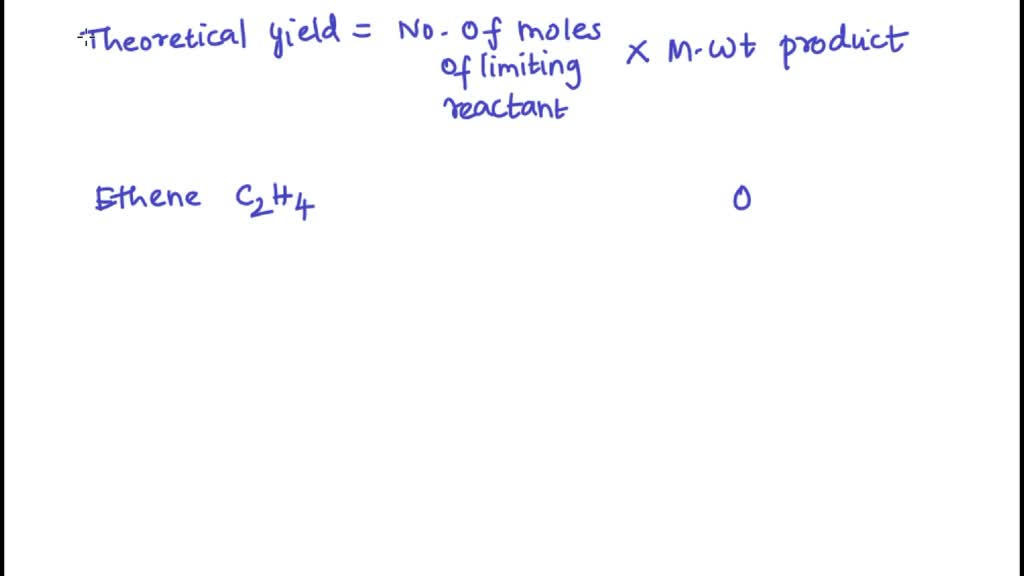 Theoretical yield = No. Of moles × M.wt product
of limiting
reactant
Ethene C₂H₄ O